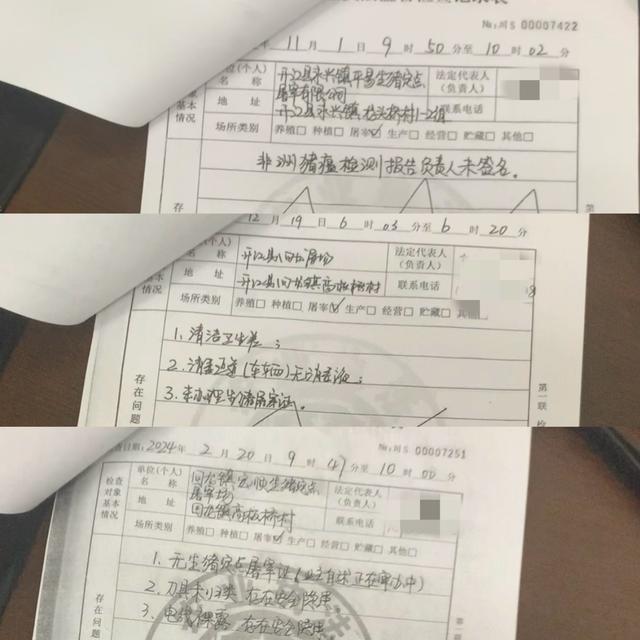 №:川S 00007422
11 月 1 日 9 时 50 分至 10 时 02 分
单位(个人)名称 开江县永兴镇平易生猪定点屠宰有限公司 法定代表人(负责人)
基本情况 地址 开江县永兴镇 村1-2组 联系电话
场所类别 养殖□ 种植□ 屠宰☑ 生产□ 经营□ 贮藏□ 其他□
非洲猪瘟检测报告负责人未签名。
存在
12 月 19 日 6 时 03 分至 6 时 20 分
开江县回龙屠场 法定代表人(负责人)
名称
基本情况 地址 开江县回龙镇高板桥村 联系电话
场所类别 养殖□ 种植□ 屠宰☑ 生产□ 经营□ 贮藏□ 其他□
1. 清洁卫生差;
2. 消毒通道(车车四)无消毒液;
3. 未办理生猪屠宰证。
存在问题
第一联
日期: 2024 年 2 月 20 日 9 时 47 分至 10 时 00 分
№:川S 00007251
检查对象基本情况 单位(个人)名称 回龙镇 生猪定点屠宰场 法定代表人(负责人)
地址 回龙镇高板桥村 联系电话
场所类别 养殖□ 种植□ 屠宰☑ 生产□ 经营□ 贮藏□ 其他□
1. 无生猪定点屠宰证(业主自述正在审办中)
2. 刀具未归类 存在安全隐患
3. 电线裸露 存在安全隐患
存在问题